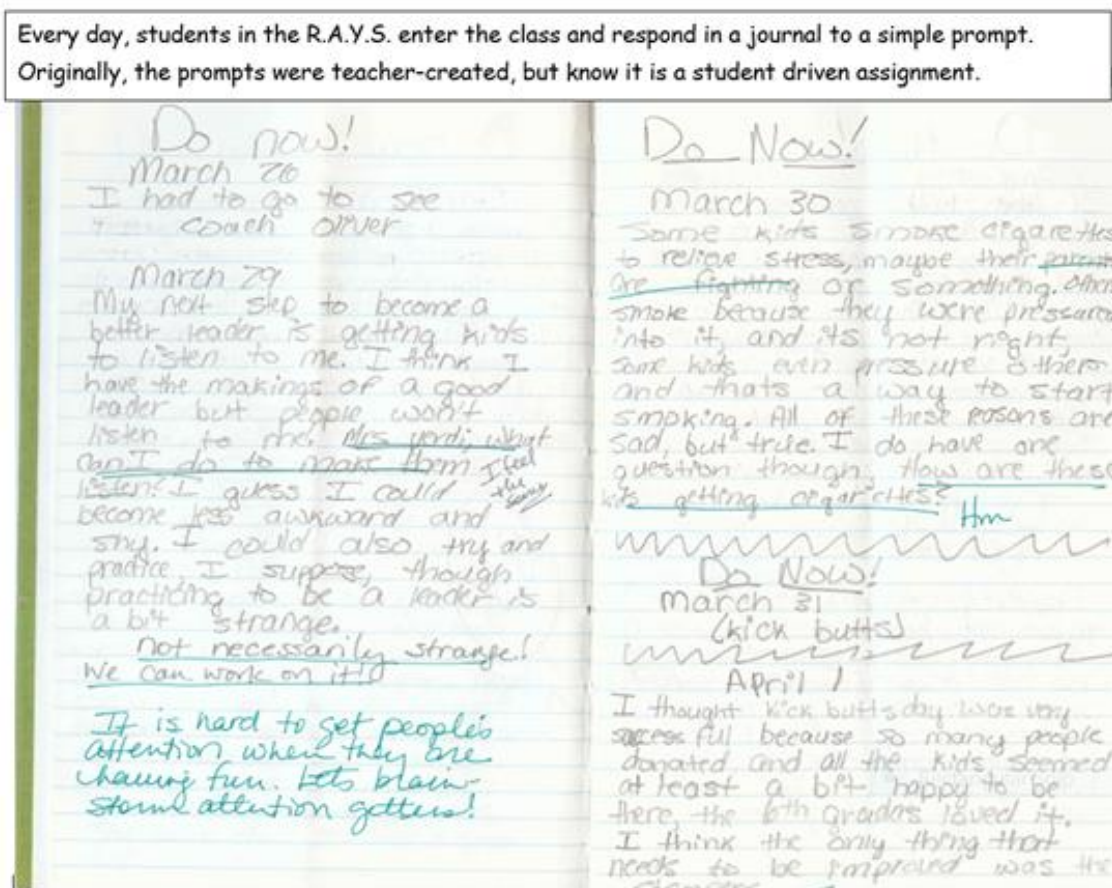 Every day, students in the R.A.Y.S. enter the class and respond in a journal to a simple prompt.
Originally, the prompts were teacher-created, but know it is a student driven assignment.
Do now!
March 26
I had to go to see
coach oliver
March 29
My next step to become a
better leader, is getting kids
to listen to me. I think I
have the makings of a good
leader but people won't
listen to me. Mrs. what
can I do to make them
listen? I guess I could
I feel
the
same
become less awkward and
shy. I could also try and
practice I suppose, though
practicing to be a leader is
a bit strange.
not necessarily strange!
We can work on it!
It is hard to get people's
attention when they are
having fun. Lets brain-
storm attention getters!
Do Now!
March 30
Some kids smoke cigarettes
to relieve stress, maybe their parents
are fighting or something. Others
smoke because they were pressured
into it, and its not right,
some kids even pressure others
and thats a way to start
smoking. All of these reasons are
sad, but true. I do have one
question though, How are these
kids getting cigarettes?
Hm
Do Now!
March 31
(kick butts)
April 1
I thought kick butts day was very
successful because so many people
donated and all the kids seemed
at least a bit happy to be
there, the 6th graders loved it.
I think the only thing that
needs to be improved was the